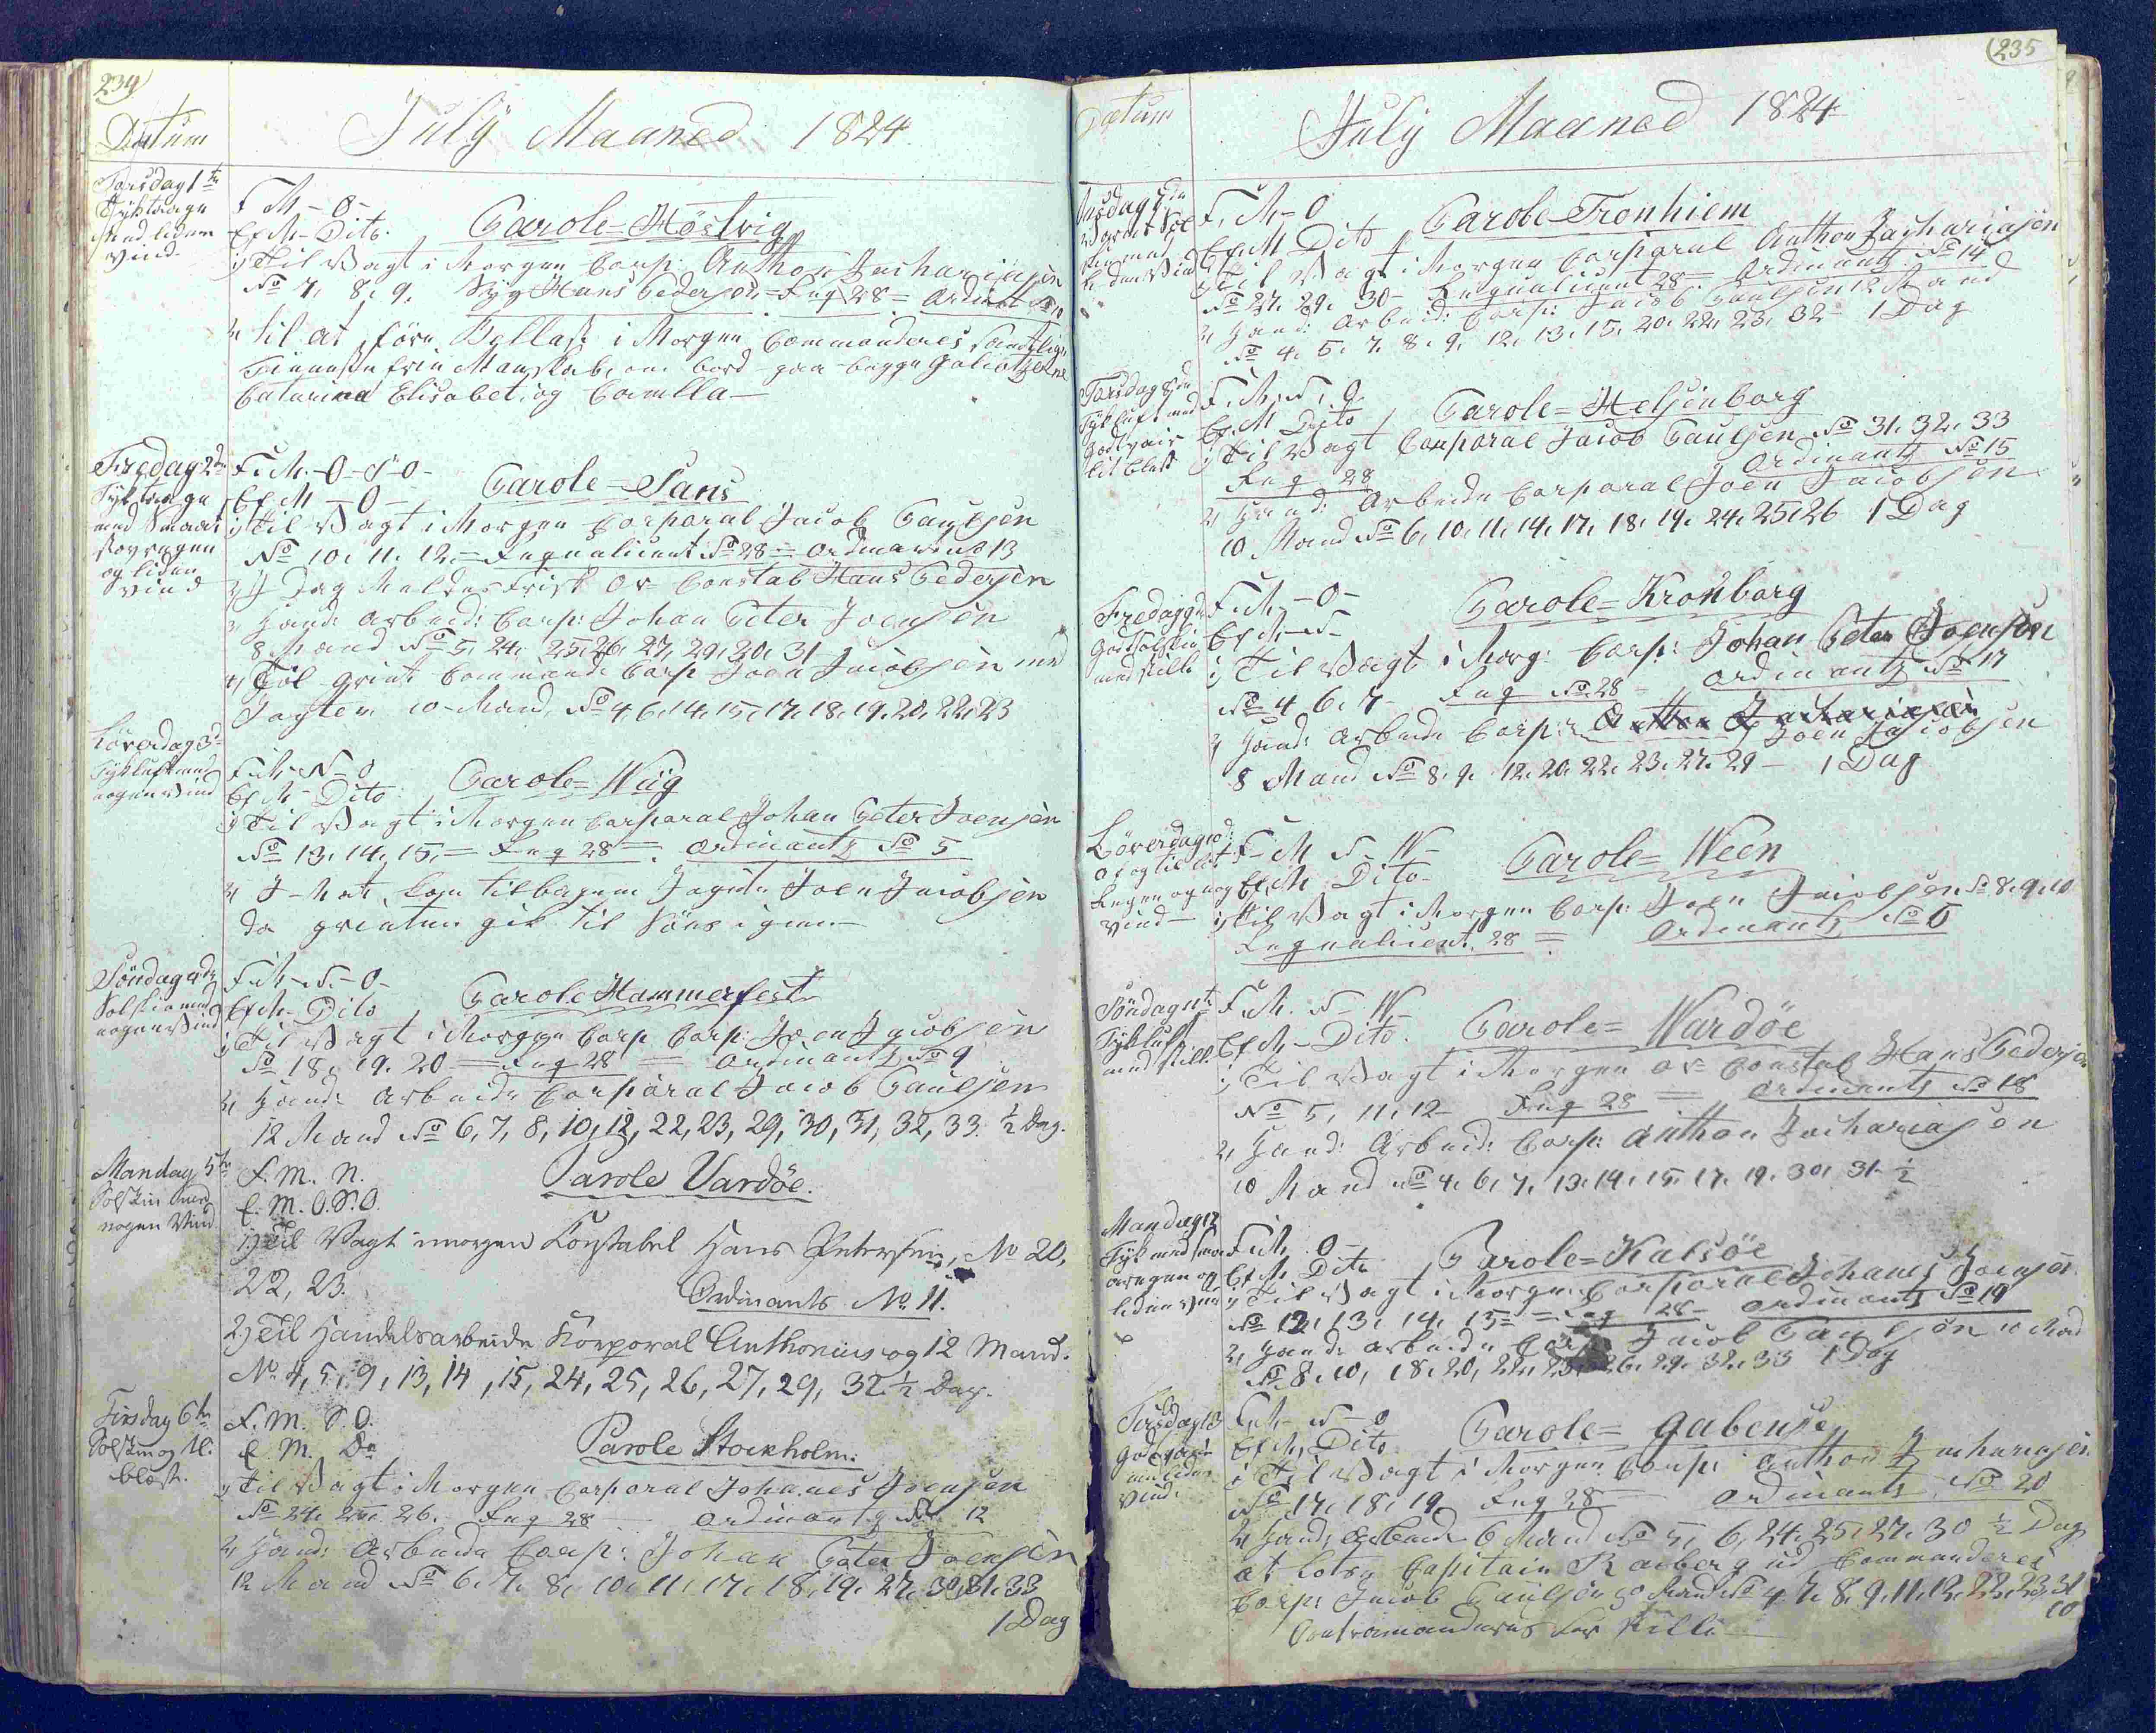 234
Datum
July Maaned 1824
Torsdag 1te
Tyktaage
med liden
Vind
F M - O -
Ef M - Dito.
Parole = Höstvig
1, Til Vagt i Morgen Corp: Anthon Zachariasen
No 7, 8, 9. Syg Hans Pedersen = Feq 28 = Ordinants No 10
2, til at före Ballast i Morgen Commanderes samtlige
Tienestefrie Manskab, om bord paa begge Galiotzerne
Catarina Elisabet og Camilla
Fredag 2den
Tyktaage
med Smaae
Stövregen
og liden
Vind
F. M. - O - S - O -
Ef M - O -
Parole = Sans
1, Til Vagt i Morgen Corporal Jacob Paulsen
No 10, 11, 12 = Feqvalicent No 28 = Ordinants No 13
2, I Dag Meldes Frisk Or = Constab Hans Pedersen
3, Hand: Arbeid: Corp: Johan Peter Joensen
8 Mand No 5, 24, 25, 26, 27, 29, 30, 31
4, Tol grint Commande Corp Joen Jacobsen med
Jagten 10 Mand No 4, 6, 14, 15, 17, 18, 19, 20, 22, 23
Löverdag 3de
Tykluft med
nogen Vind
F. M. N - O
Ef M - Dito
Parole = Wiig
1, Til Vagt i Morgen Corporal Johan Peter Joensen
No 13, 14, 15, = Feq 28 = Ordinants No 5
2, I - Nat kom tilbagem Jagten Joen Jacobsen
da grinten gik til Söes igien
Söndag 4de
Solskin med
nogen Vind
F. M - N - O -
Ef M - Dito
Parole Hammerfest
1, Til Vagt i Morgen Corp Corp: Joen Jacobsen
No 18, 19, 20 = Feq 28 = Ordinants No 9
2, Hand: Arbeide Corporal Jacob Paulsen
12 Mand No 6, 7, 8, 10, 12, 22, 23, 29, 30, 31, 32, 33. ½ Dag.
Mandag 5te
Solskin med
nogen Vind
F. M. N.
E. M. O. S. O.
Parole Vardöe.
1) Til Vagt imorgen Konstabel Hans Petersen, No 20,
22, 23.
Ordinants No. 11.
2) Til Handelsarbeide Korporal Anthonius og 12 Mand.
No. 4, 5, 9, 13, 14, 15, 24, 25, 26, 27, 29, 32. ½ Dag.
Tirsdag 6te
Solskin og lil.
blæst.
F. M. S. O.
E. M. Do
Parole Stockholm.
1, Til Vagt i Morgen Corporal Johannes Joensen
No 24, 25, 26. Feq 28 Ordinants No 12
2, Hand: Arbeide Corp: Johan Peter Joensen
12 Mand No 6, 7, 8, 10, 11, 17, 18, 19, 27, 30, 31, 33
1 Dag
235
Datum
July Maaned 1824
Onsdag 7de
liden Vind
F. M - O
Ef M Dito
Parole Tronhiem
1, Til Vagt i Morgen Corporal Anthon Zachariasen
No 27, 29, 30 - Feqvalicent 28 = Ordinants No 14
2, Hand: Arbeid: Corp: Jacob Paulsen 12 Mand
No 4, 5, 7, 8, 9, 12, 13, 15, 20, 22, 23, 32 - 1 Dag
Torsdag 8de
Tykluft med
Godt vair
lit blæst
F. M. N. O.
Ef. M Dito
Parole = Helsinborg
1, Til Vagt Corporal Jacob Paulsen No 31, 32, 33
Feq 28 Ordinants No 15
2, Hand: Arbeide Corporal Joen Jacobsen
10 Mand No 6, 10, 11, 14, 17, 18, 19, 24, 25, 26 1 Dag
Fredag 9de
Godt Solskin
med stille
F. M - O -
Ef M - N -
Parole = Kronborg
1, Til Vagt i Morg: Corp: Johan Peter Joensen
No 4, 6, 7 - Feq No 28 - Ordinants No 17
2, Hand: Arbeide Corp: Anthon Zachariasen
Joen Jacobsen
8 Mand No 8, 9, 12, 20, 22, 23, 27, 29 - 1 Dag
Löverdag 10d:
af og til lit
Regen og nog
Vind -
F - M N - W -
Ef. M Dito -
Parole = Ween
1, Til Vagt i Morgen Corp: Joen Jacobsen No 8, 9, 10
Feqvalicent 28 = Ordinants No 5
Söndag 11te
Tykluft
med stille
F. M. N - W -
Ef M - Dito.
Parole = Wardöe
1, Til Vagt i Morgen Or = Constab Hans Pedersen
No 5, 11, 12 - Feq 28 = Ordinants No 18
2, Hand: Arbeid: Corp: Anthon Zachariasen
10 Mand No 4, 6, 7, 13, 14, 15, 17, 19, 30, 31 - ½
Mandag 12
Tyk med smaa
aregen og
liden Vind
F. M. O -
Ef M Dito
Parole = Kalsöe
1, Til Vagt i Morgen Corporal Johanes Joensen
No 12, 13, 14, 15 = Feq 28 - Ordinants No 19
2, Hand: Arbeide Corp Jacob Paulsen 10 Mand
No 8, 10, 18, 20, 22, 23, 26, 29, 32, 33 1 Dag
Tirsdag 13
Godt vair
med liden
Vind.
F. M - N - O
Ef M, Dito
Parole = Gabense
1, Til Vagt i Morgen Corp: Anthon Zachariasen
No 17, 18, 19 Feq 28 Ordinants No 20
2, Hand: Arbeide 6 Mand No 5, 6, 24, 25, 27, 30 ½ Dag
at Lotse Capitain Raaberg ud Commanderes
Corp: Jacob Paulsen 10 Mand No 4, 7, 8, 9, 11, 12, 22, 23, 31
10
Contramanderes for Stille